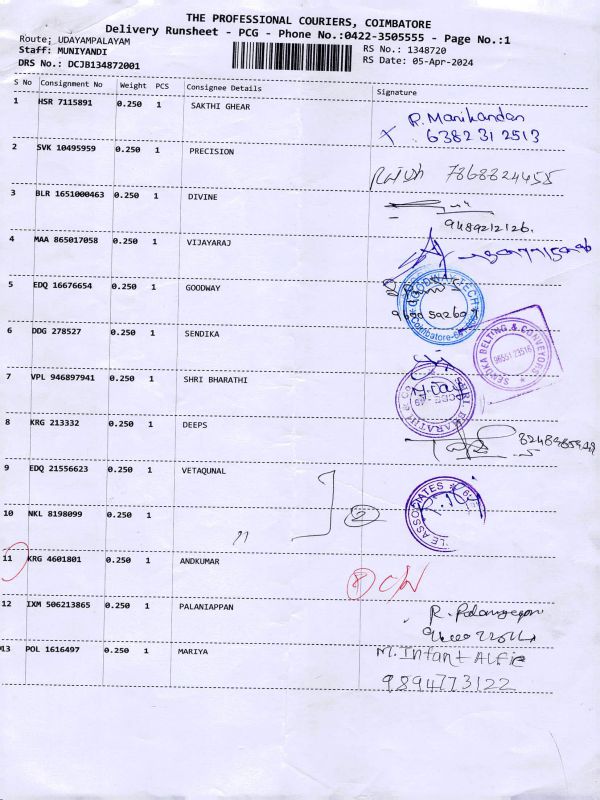 THE PROFESSIONAL COURIERS, COIMBATORE
Delivery Runsheet - PCG - Phone No.:0422-3505555 - Page No.:1
Route; UDAYAMPALAYAM
Staff: MUNIYANDI
RS No.: 1348720
DRS No.: DCJB134872001
RS Date: 05-Apr-2024
S No Consignment No Weight PCS Consignee Details Signature
1 HSR 7115891 0.250 1 SAKTHI GHEAR
R. Manikandan
6382312513
2 SVK 10495959 0.250 1 PRECISION
7868824455
3 BLR 1651000463 0.250 1 DIVINE
9489212126.
4 MAA 865017058 0.250 1 VIJAYARAJ
5 EDQ 16676654 0.250 1 GOODWAY
GOODWAY TECH
Coimbatore
6 DDG 278527 0.250 1 SENDIKA
SENDIKA BELTING & CONVEYORS
96551 23516
7 VPL 946897941 0.250 1 SHRI BHARATHI
SHRI BHARATHI & CO
CBE - 49
8 KRG 213332 0.250 1 DEEPS
9 EDQ 21556623 0.250 1 VETAQUNAL
ASSOCIATES
10 NKL 8198099 0.250 1 〃
2
11 KRG 4601801 0.250 1 ANDKUMAR
8 C/N
12 IXM 506213865 0.250 1 PALANIAPPAN
13 POL 1616497 0.250 1 MARIYA
M. Infant Alfie
9894773122